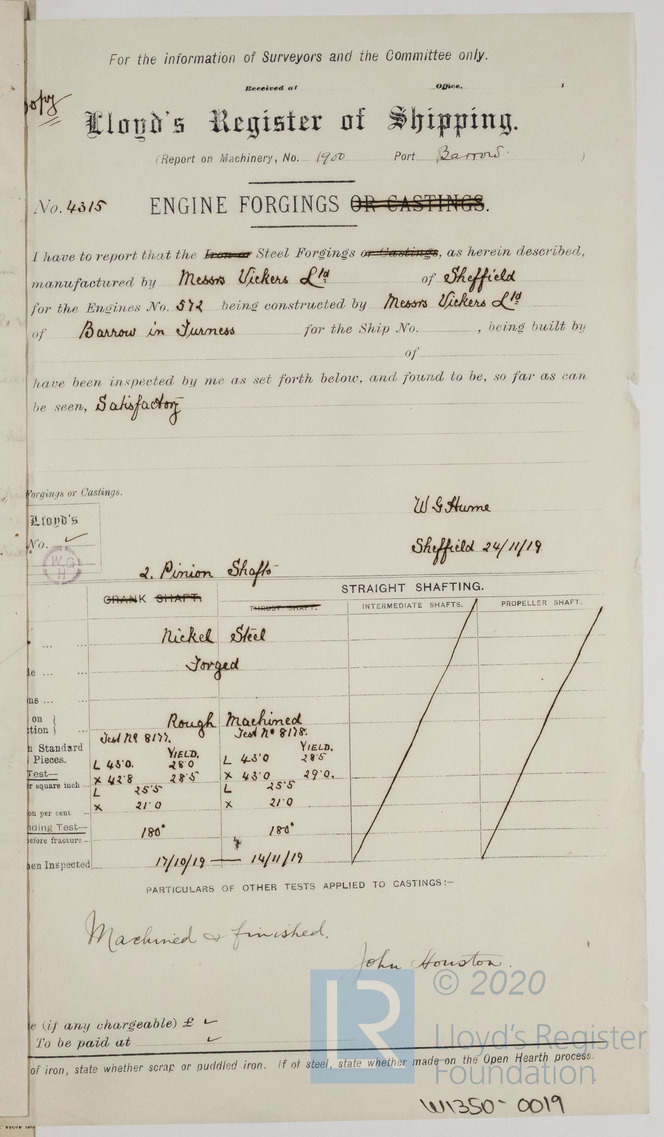 For the information of Surveyors and the Committee only.
Received at Office, 1
opy
Lloyd's Register of Shipping.
(Report on Machinery, No. 1900 Port Barrow. )
No. 4315 ENGINE FORGINGS OR CASTINGS.
I have to report that the Iron or Steel Forgings or Castings, as herein described,
manufactured by Messrs Vickers Ltd of Sheffield
for the Engines No. 572 being constructed by Messrs Vickers Ltd
of Barrow in Furness for the Ship No. , being built by
of
have been inspected by me as set forth below, and found to be, so far as can
be seen, Satisfactory
Forgings or Castings.
W G Hume
Lloyd's
No. ✓
Sheffield 24/11/19
W.G
H
2. Pinion Shafts
STRAIGHT SHAFTING.
CRANK SHAFT.
THRUST SHAFT. INTERMEDIATE SHAFTS. PROPELLER SHAFT.
Nickel Steel
Forged
ns
on
tion
Rough Machined
Test No 8177. Test No 8178.
n Standard
Pieces.
YIELD. YIELD.
L 43.0. 28.0 L 43.0 28.5
Test—
X 42.8 28.5 X 43.0 29.0.
r square inch
L 25.5 L 25.5
X 21.0 X 21.0
on per cent
nding Test—
180° 180°
before fracture
hen Inspected 17/10/19 — 14/11/19
PARTICULARS OF OTHER TESTS APPLIED TO CASTINGS:–
Machined & finished.
John Houston.
© 2020
LR
Lloyd's Register
Foundation
e (if any chargeable) £ ✓
To be paid at ✓
of iron, state whether scrap or puddled iron. If of steel, state whether made on the Open Hearth process.
W1350-0019